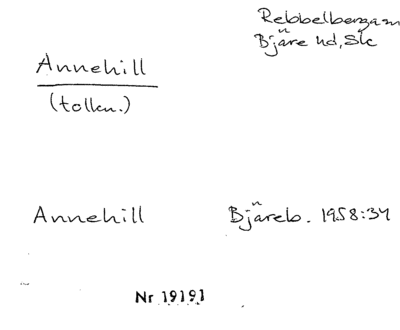 Rebbelbergam
Bjäre hd, Sk
Annehill
(tolkn.)
Annehill Bjäreb. 1958:34
Nr 19191